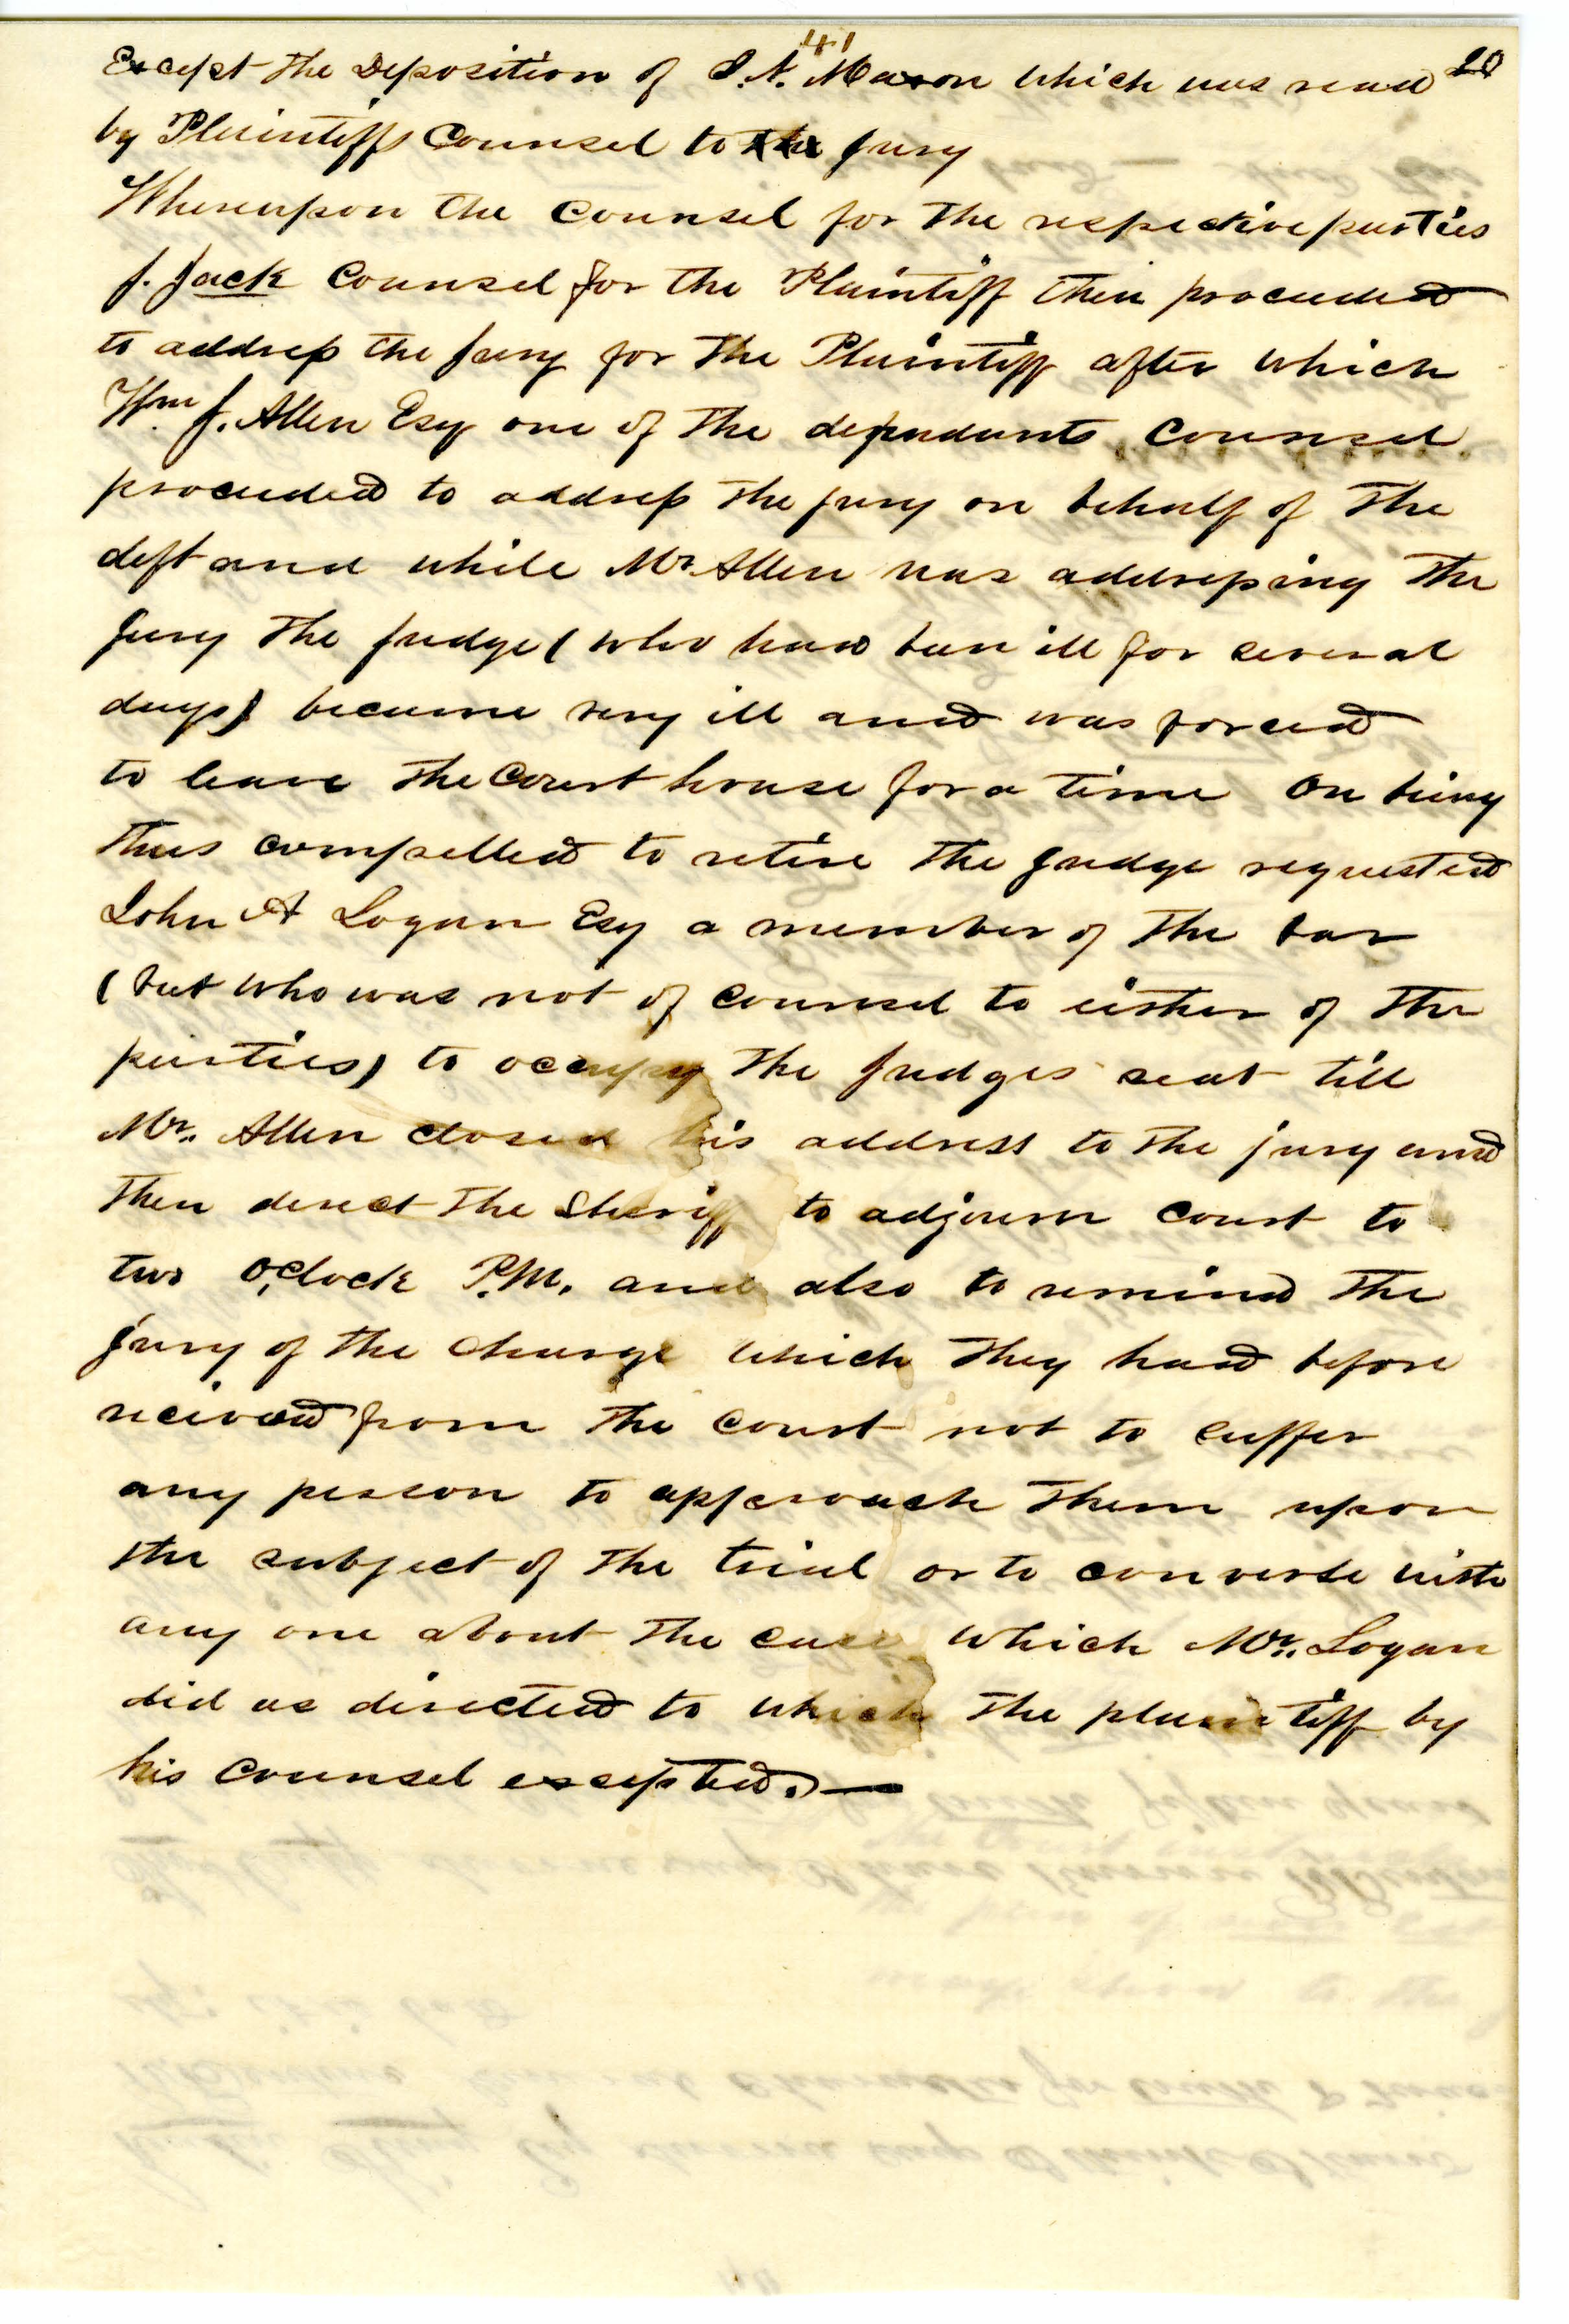 41
20
Except the Deposition of S. N. Mason which was read
by Plaintiffs Counsel to the Jury
Whereupon the Counsel for the respective parties
J. Jack Counsel for the Plaintiff then proceeded
to address the Jury for the Plaintiff after which
Wm J. Allen Esq one of the defendants Counsel
proceeded to address the jury on behalf of the
deft and while Mr Allen was addressing the
Jury the Judge (who had been ill for several
days) became very ill and was forced
to leave the Court house for a time On being
thus compelled to retire the Judge requested
John A Logan Esq a member of the bar
(but who was not of counsel to either of the
parties) to occupy the Judges seat till
Mr. Allen closed his address to the jury and
then direct the Sheriff to adjourn court to
two O,clock P.M. and also to remind the
jury of the charge which they had before
recieved from the Court not to suffer
any person to approach them upon
the subject of the trial or to converse with
any one about the case which Mr. Logan
did as directed to which the plaintiff by
his Counsel excepted. —